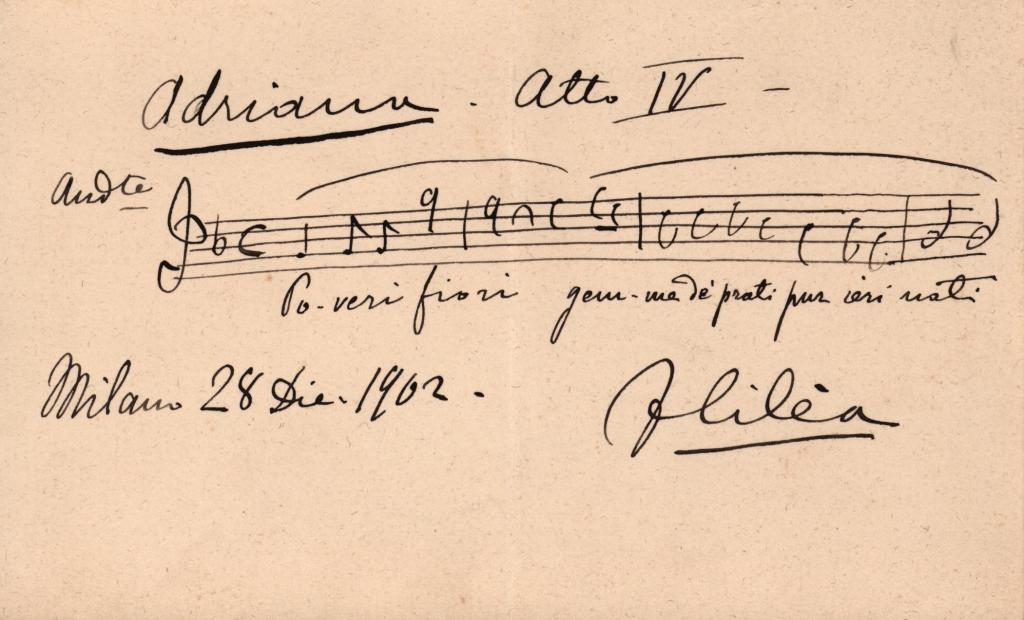 Adriana . Atto IV -
Andte
Po-veri fiori gem-me dè prati pur ieri nati
Milano 28 Dic. 1902 .
F Cilèa